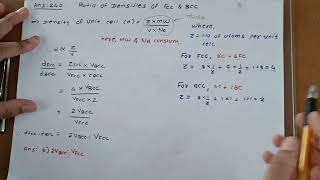 Ans: 240 Ratio of Densities of FCC & BCC
⇒ Density of unit cell (d) = Z × MW / V × NA
here, MW & NA constant
where,
Z = no of atoms per unit cell.
d ∝ Z / V
dFCC / dBCC = ZFCC × VBCC / VFCC × ZBCC
= 4 × VBCC / VFCC × 2
= 2VBCC / VFCC
dFCC : dBCC = 2VBCC : VFCC
Ans: b) 2VBCC : VFCC
For FCC, 8C + 6FC
Z = 8 × 1/8 + 6 × 1/2 = 1+3 = 4
For BCC, 8C + 1BC
Z = 8 × 1/8 + 1×1 = 1+1 = 2